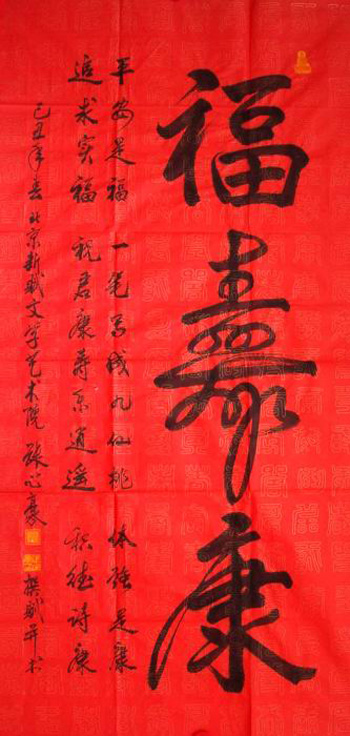 福壽康
平安是福 一笔写成九仙桃 体强是康
追求实福 祝君康寿京逍遥 积德诗康
己丑年春北京新赋文学艺术院 张心豪 撰赋并书